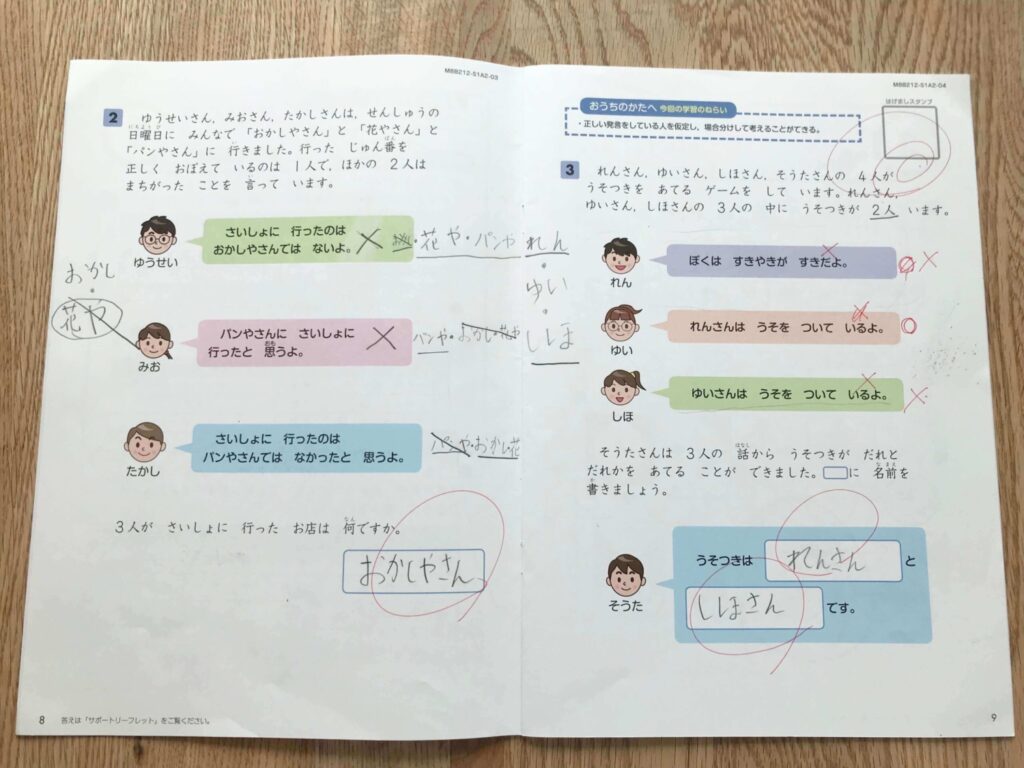 M8B212-S1A2-03
2
ゆうせいさん，みおさん，たかしさんは，せんしゅうの
にちようび
日曜日に みんなで 「おかしやさん」と 「花やさん」と
「パンやさん」に 行きました。行った じゅん番を
正しく おぼえて いるのは 1人で，ほかの 2人は
まちがった ことを 言って います。
さいしょに 行ったのは
おかしやさんでは ないよ。
ゆうせい
・花や・パンや
おかし
・
花や
パンやさんに さいしょに
行ったと 思うよ。
おも
みお
パンや・おかし・花や
さいしょに 行ったのは
パンやさんでは なかったと 思うよ。
たかし
パンや・おかし・花
3人が さいしょに 行った お店は 何ですか。
なん
おかしやさん
8 答えは「サポートリーフレット」をご覧ください。
M8B212-S1A2-04
おうちのかたへ 今回の学習のねらい
・正しい発言をしている人を仮定し，場合分けして考えることができる。
はげましスタンプ
3
れんさん，ゆいさん，しほさん，そうたさんの 4人が
うそつきを あてる ゲームを して います。れんさん，
ゆいさん，しほさんの 3人の 中に うそつきが 2人 います。
れん
・
ゆい
・
しほ
ぼくは すきやきが すきだよ。
れん
れんさんは うそを ついて いるよ。
ゆい
ゆいさんは うそを ついて いるよ。
しほ
そうたさんは 3人の 話から うそつきが だれと
はなし
だれかを あてる ことが できました。に 名前を
なまえ
書きましょう。
か
うそつきは れんさん と
しほさん です。
そうた
9